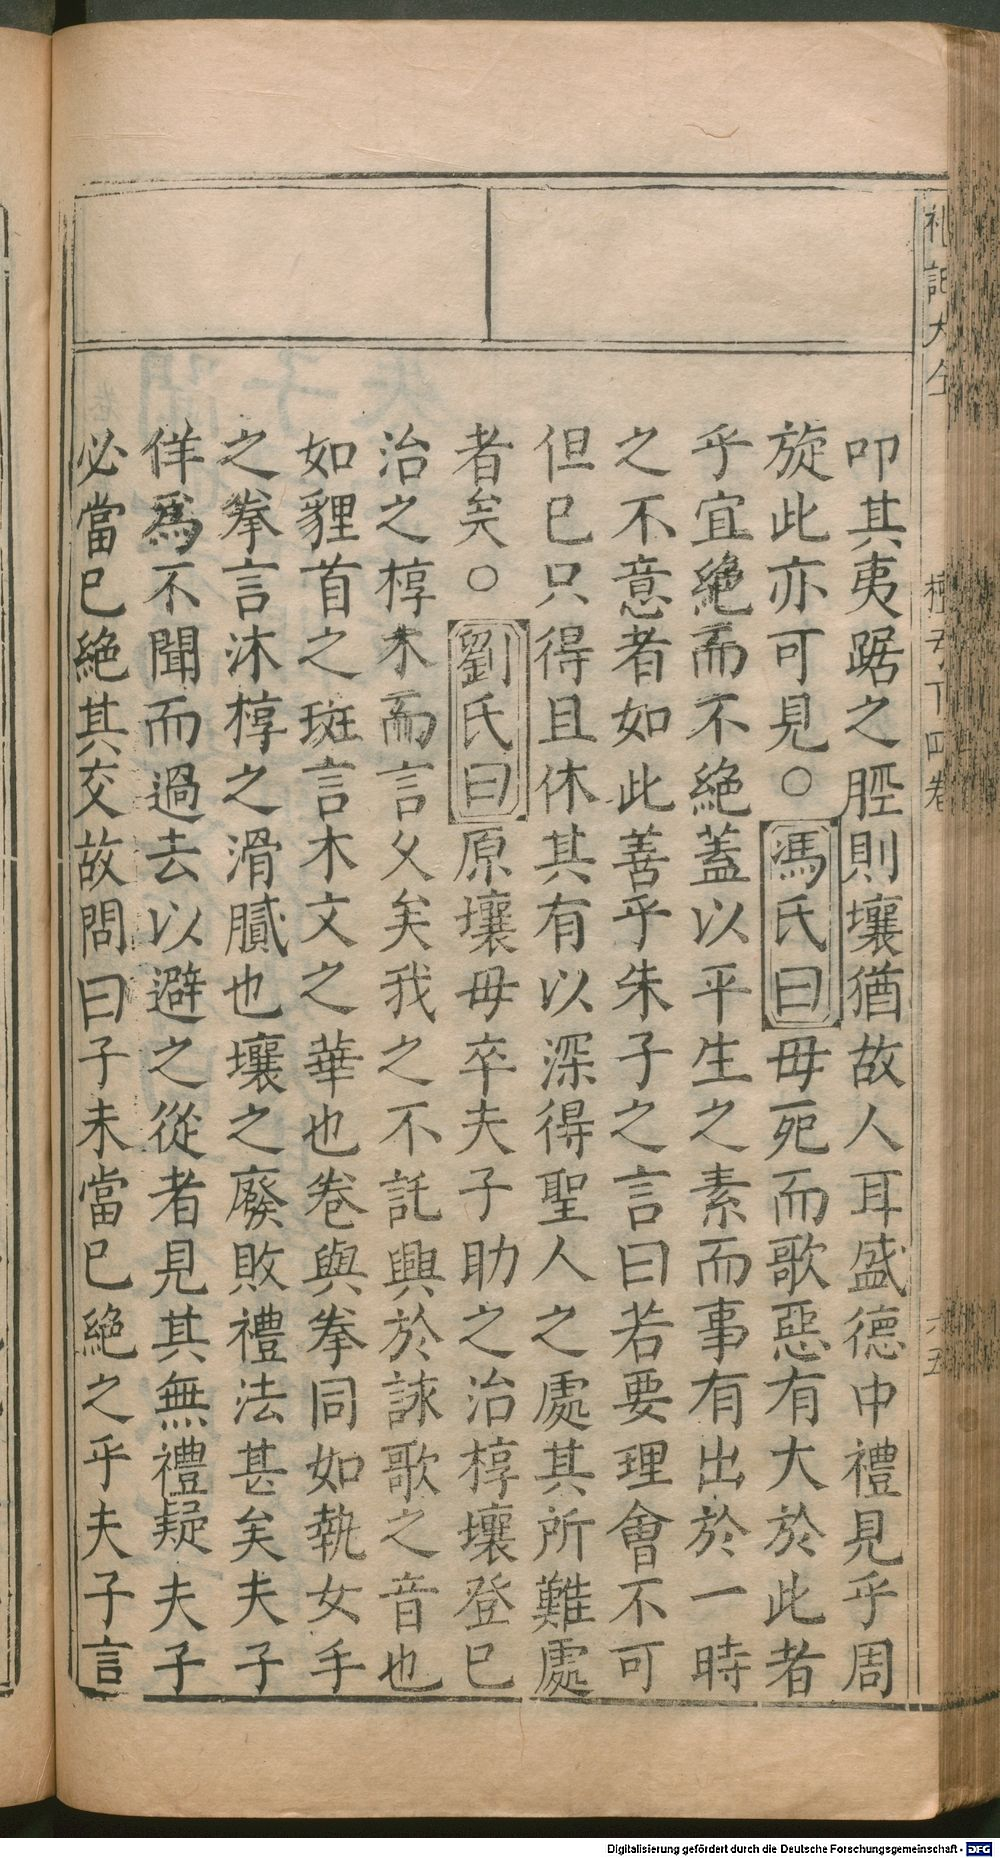 禮記大全
檀弓下四卷
六五
叩其夷踞之脛則壤猶故人耳盛德中禮見乎周
旋此亦可見○馮氏曰毋死而歌惡有大於此者
乎宜絶而不絶蓋以平生之素而事有出於一時
之不意者如此善乎朱子之言曰若要理會不可
但已只得且休其有以深得聖人之處其所難處
者矣○劉氏曰原壤毋卒夫子助之治椁壤登已
治之椁木而言乆矣我之不託興於詠歌之音也
如貍首之斑言木文之華也卷與拳同如執女手
之拳言沐椁之滑膩也壤之廢敗禮法甚矣夫子
佯爲不聞而過去以避之從者見其無禮疑夫子
必當已絶其交故問曰子未當已絶之乎夫子言
Digitalisierung gefördert durch die Deutsche Forschungsgemeinschaft - DFG